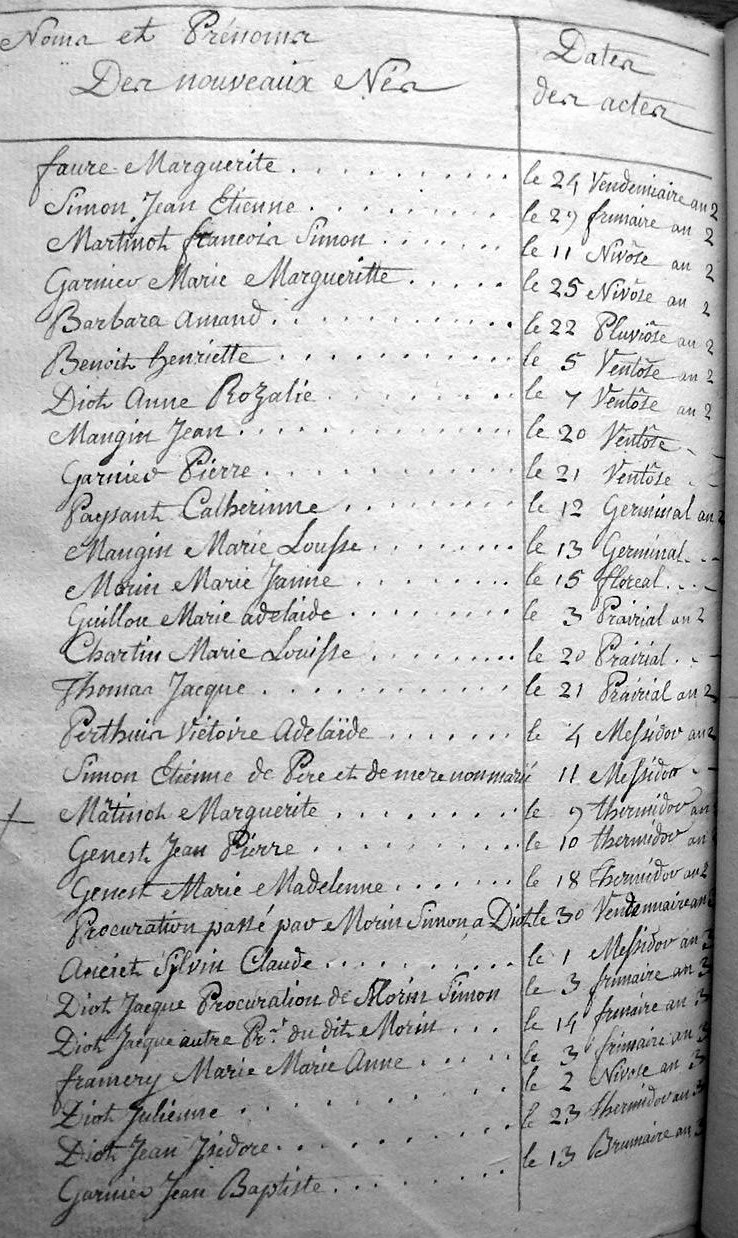 Noms et Prénoms
Des nouveaux Nés
Dates
des actes
faure Marguerite . . . . . . . . . . le 24 Vendemiaire an 2
Simon Jean Etienne . . . . . . . . . le 29 frimaire an 2
Martinot francois Simon . . . . . . . le 11 Nivôse an 2
Garnier Marie Margueritte . . . . . le 25 Nivôse an 2
Barbara amand . . . . . . . . . . . le 22 Pluviôse an 2
Benoit henriette . . . . . . . . . . le 5 Ventôse an 2
Diot Anne Rozalie . . . . . . . . . le 7 Ventôse an 2
Mangin Jean . . . . . . . . . . . . le 20 Ventôse - -
Garnier Pierre . . . . . . . . . . . le 21 Ventôse - -
Paysant Catherinne . . . . . . . . le 12 Germinal an 2
Mangin Marie Louisse . . . . . . . le 13 Germinal - -
Morin Marie Janne . . . . . . . . le 15 floreal - -
Guillou Marie adelaide . . . . . . . le 3 Prairial an 2
Chartin Marie Louisse . . . . . . . le 20 Prairial - -
Thomas Jacque . . . . . . . . . . . le 21 Prairial an 2
Perthuis Victoire Adelaïde . . . . . . le 4 Messidor an 2
Simon Etienne de Pere et de mere non marié 11 Messidor - -
Matinot Marguerite . . . . . . . . . le 9 thermidor an
Genest Jean Pierre . . . . . . . . . le 10 thermidor an
Genest Marie Madelenne . . . . . . le 18 Thermidor an 2
Procuration passé par Morin Simon a Diot le 30 Vendemiaire an 3
Sylvin Claude . . . . . . . . . le 1 Messidor an 3
Diot Jacque Procuration de Morin Simon le 3 frimaire an 3
Diot Jacque autre Pr.n du dit Morin . . . le 14 frimaire an 3
framery Marie Marie Anne . . . . . le 3 frimaire an 3
Diot Julienne . . . . . . . . . . le 2 Nivose an 3
Diot Jean Isidore . . . . . . . . . le 23 thermidor an 3
Garnier Jean Baptiste . . . . . . . le 13 Brumaire an 3